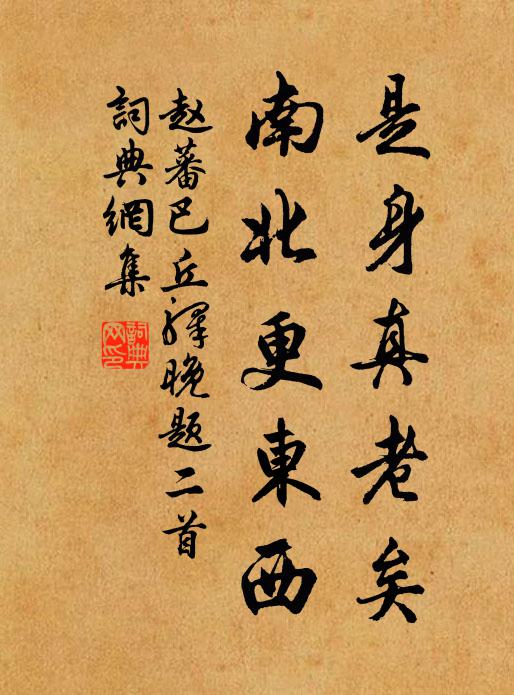 是身真老矣
南北更東西
赵蕃巴丘驛晚题二首
詞典網集
詞典网印